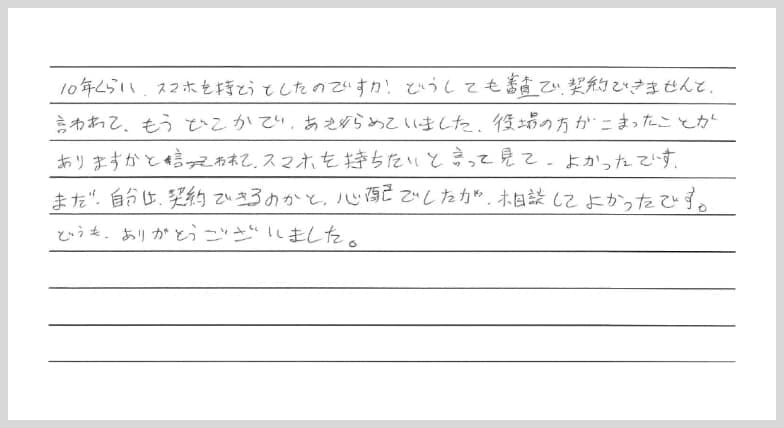 10年くらい、スマホを持とうとしたのですが、どうしても審査で、契約できませんと、
言われて、もうどこかで、あきらめていました、役場の方がこまったことが
ありますかと言われて、スマホを持ちたいと言って見て、よかったです、
まだ、自分は、契約できるのかと、心配でしたが、相談してよかったです。
どうも、ありがとうございました。